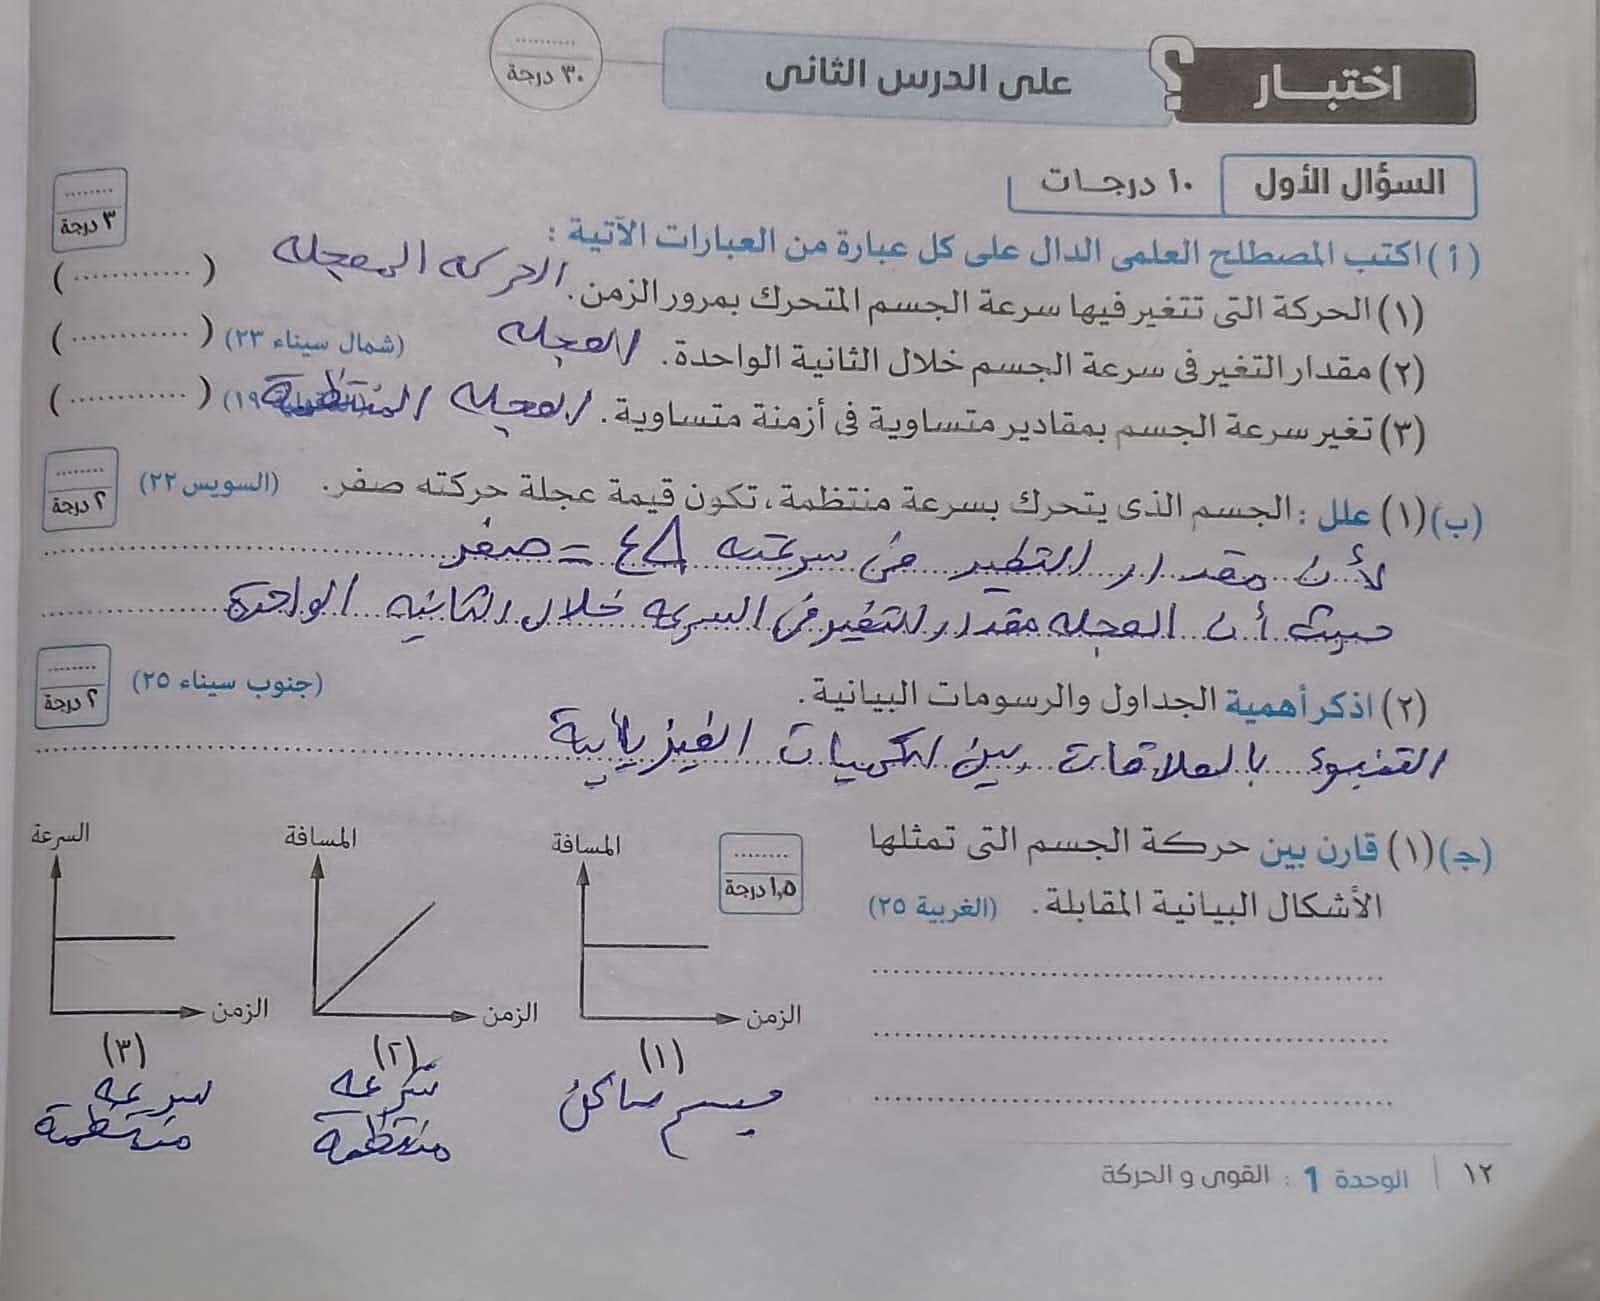 اختبار ؟ على الدرس الثانى
.......... ٣٠ درجة
السؤال الأول ١٠ درجات
........ ٣ درجة
(أ) اكتب المصطلح العلمى الدال على كل عبارة من العبارات الآتية :
(١) الحركة التى تتغير فيها سرعة الجسم المتحرك بمرور الزمن. الحركه المعجله (............)
(٢) مقدار التغير فى سرعة الجسم خلال الثانية الواحدة. العجله (شمال سيناء ٢٣) (............)
(٣) تغير سرعة الجسم بمقادير متساوية فى أزمنة متساوية. العجله المنتظمة ١٩) (............)
(ب) (١) علل : الجسم الذى يتحرك بسرعة منتظمة، تكون قيمة عجلة حركته صفر. (السويس ٢٢)
........ ٢ درجة
لأن مقدار التغير فى سرعته Δع = صفر
حيث أن العجله مقدار التغير فى السرعه خلال الثانيه الواحدة
(٢) اذكر أهمية الجداول والرسومات البيانية. (جنوب سيناء ٢٥)
........ ٢ درجة
التنبوء بالعلاقات بين الكميات الفيزيائية
(ج) (١) قارن بين حركة الجسم التى تمثلها
الأشكال البيانية المقابلة. (الغربية ٢٥)
........ ١,٥ درجة
المسافة
الزمن
(١)
جسم ساكن
المسافة
الزمن
(٢)
سرعه
منتظمة
السرعة
الزمن
(٣)
سرعه
منتظمة
١٢ | الوحدة 1 : القوى و الحركة